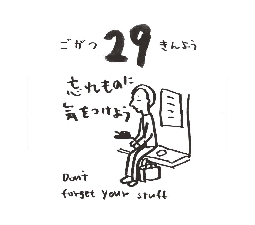 ごがつ 29 きんよう
忘れものに
気をつけよう
Don't
forget your stuff